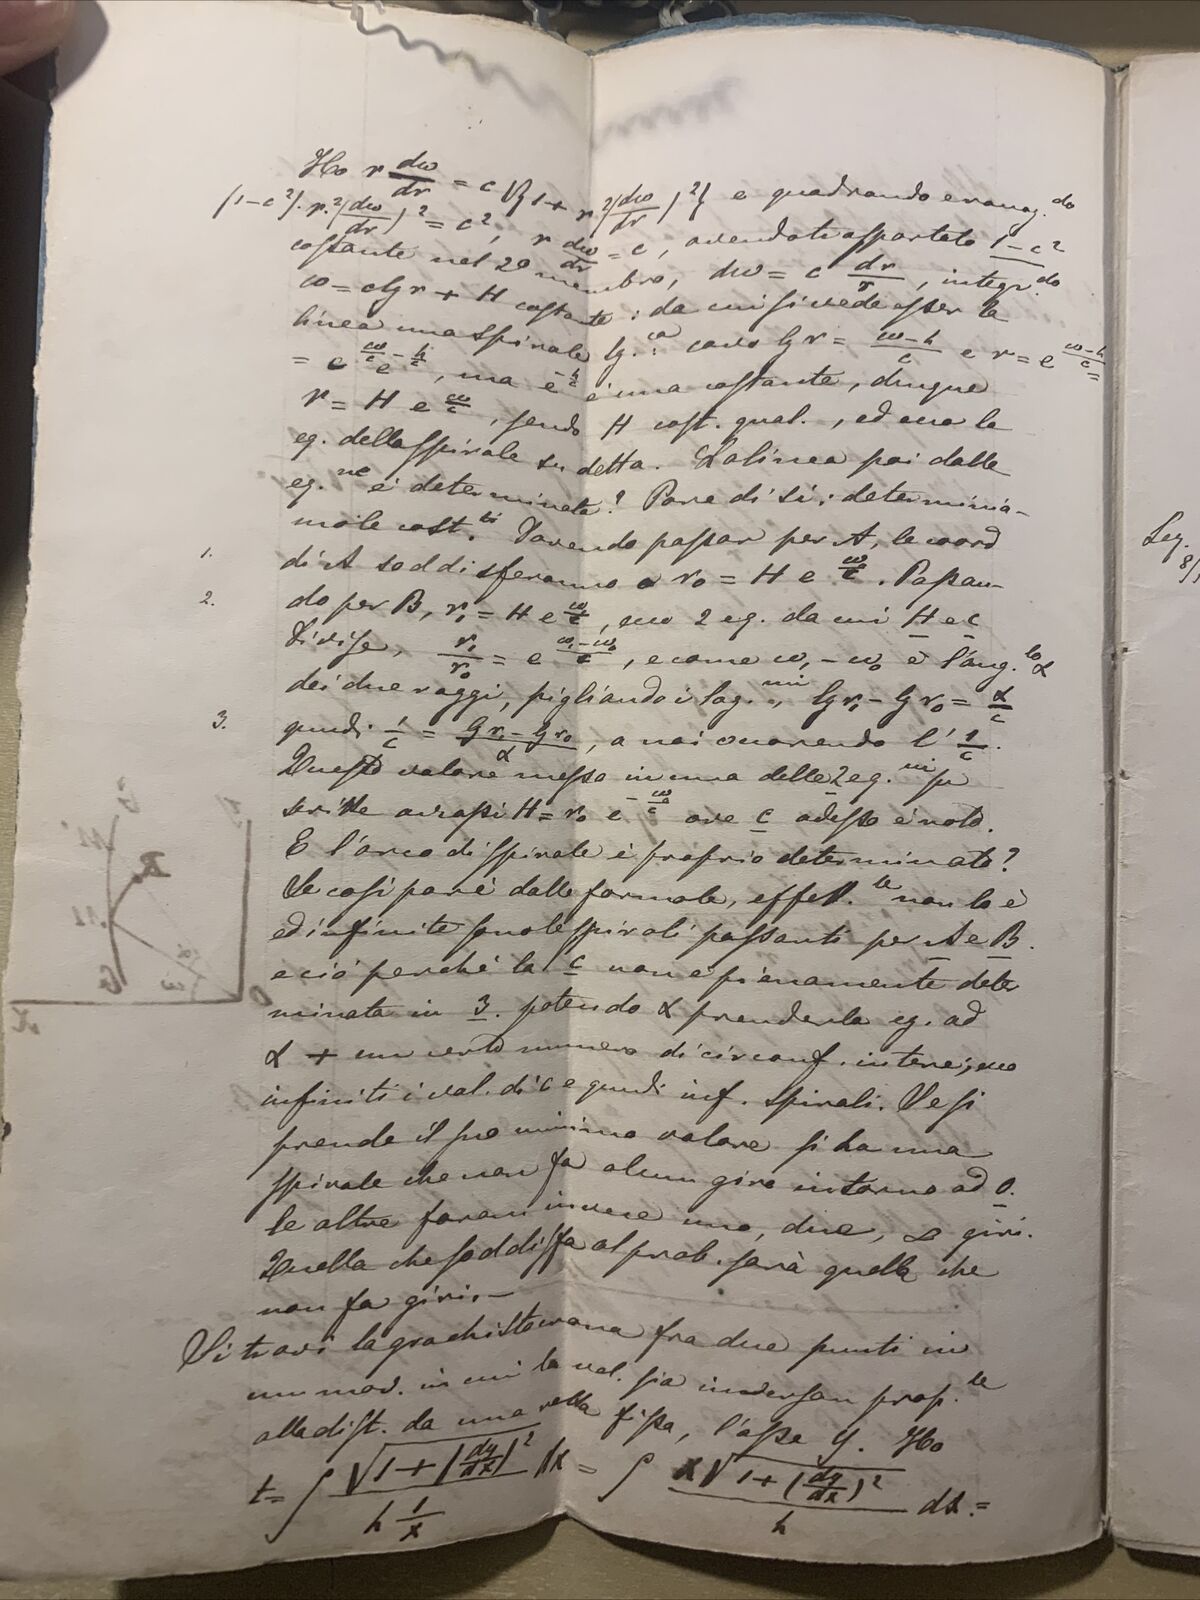 Ho r dω/dr = c √{1 + r²(dω/dr)²} e quadrando e ranag.do
(1-c²). r²(dω/dr)² = c², r dω/dr = c, avendo trasportato 1-c²
costante nel 2º membro, dω = c dr/r, integr.do
ω = c lg r + H costante: da cui si vede esser la
linea una spirale lg.ca: cavo lg r = (ω-h)/c e r = e^((ω-h)/c) =
= e^(ω/c) e^(-h/c), ma e^(-h/c) è una costante, dunque
r = H e^(ω/c), sendo H cost. qual., ed ecco la
eq. della spirale sudetta. La linea poi dalle
eq.ne è determinata? Pare di sì: determinia-
mo le cost.ti Dovendo passar per A, le coord
1. di A soddisferanno a r₀ = H e^(ω/c). Passan-
2. do per B, r₁ = H e^(ω/c), ecco 2 eq. da cui H e c
Divise, r₁/r₀ = e^((ω₁-ω₀)/c), e come ω₁-ω₀ è l'ang.lo α
dei due raggi, pigliando i log.mi, lg r₁ - lg r₀ = α/c
3. quindi 1/c = (lg r₁ - lg r₀)/α, a noi occorrendo l' 1/c.
Questo valore messo in una delle 2 eq.ni su
scritte avrassi H = r₀ e^(-ω/c) ove c adesso è noto.
E l'arco di spirale è proprio determinato?
Se così par è dalle formole, effett.te non lo è
ed infinite sono le spirali passanti per A e B.
e ciò perchè la c non è pienamente deter
minata in 3. potendo α prenderla eg. ad
α + un certo numero di circonf. intere; ecco
infiniti i val. di c e quindi inf. spirali. Se si
prende il suo minimo valore si ha una
spirale che non fa alcun giro intorno ad O.
le altre faran invece uno, due, ∞ giri.
Quella che soddisfa al prob. sarà quella che
non fa giri.—
Si trovi la brachistocrona fra due punti in
un mov. in cui la vel. sia inversam prop.le
alla dist. da una retta fissa, l'asse y. Ho
t = ∫ √(1+(dy/dx)²) / (h 1/x) dx = ∫ x√(1+(dy/dx)²) / h dx =